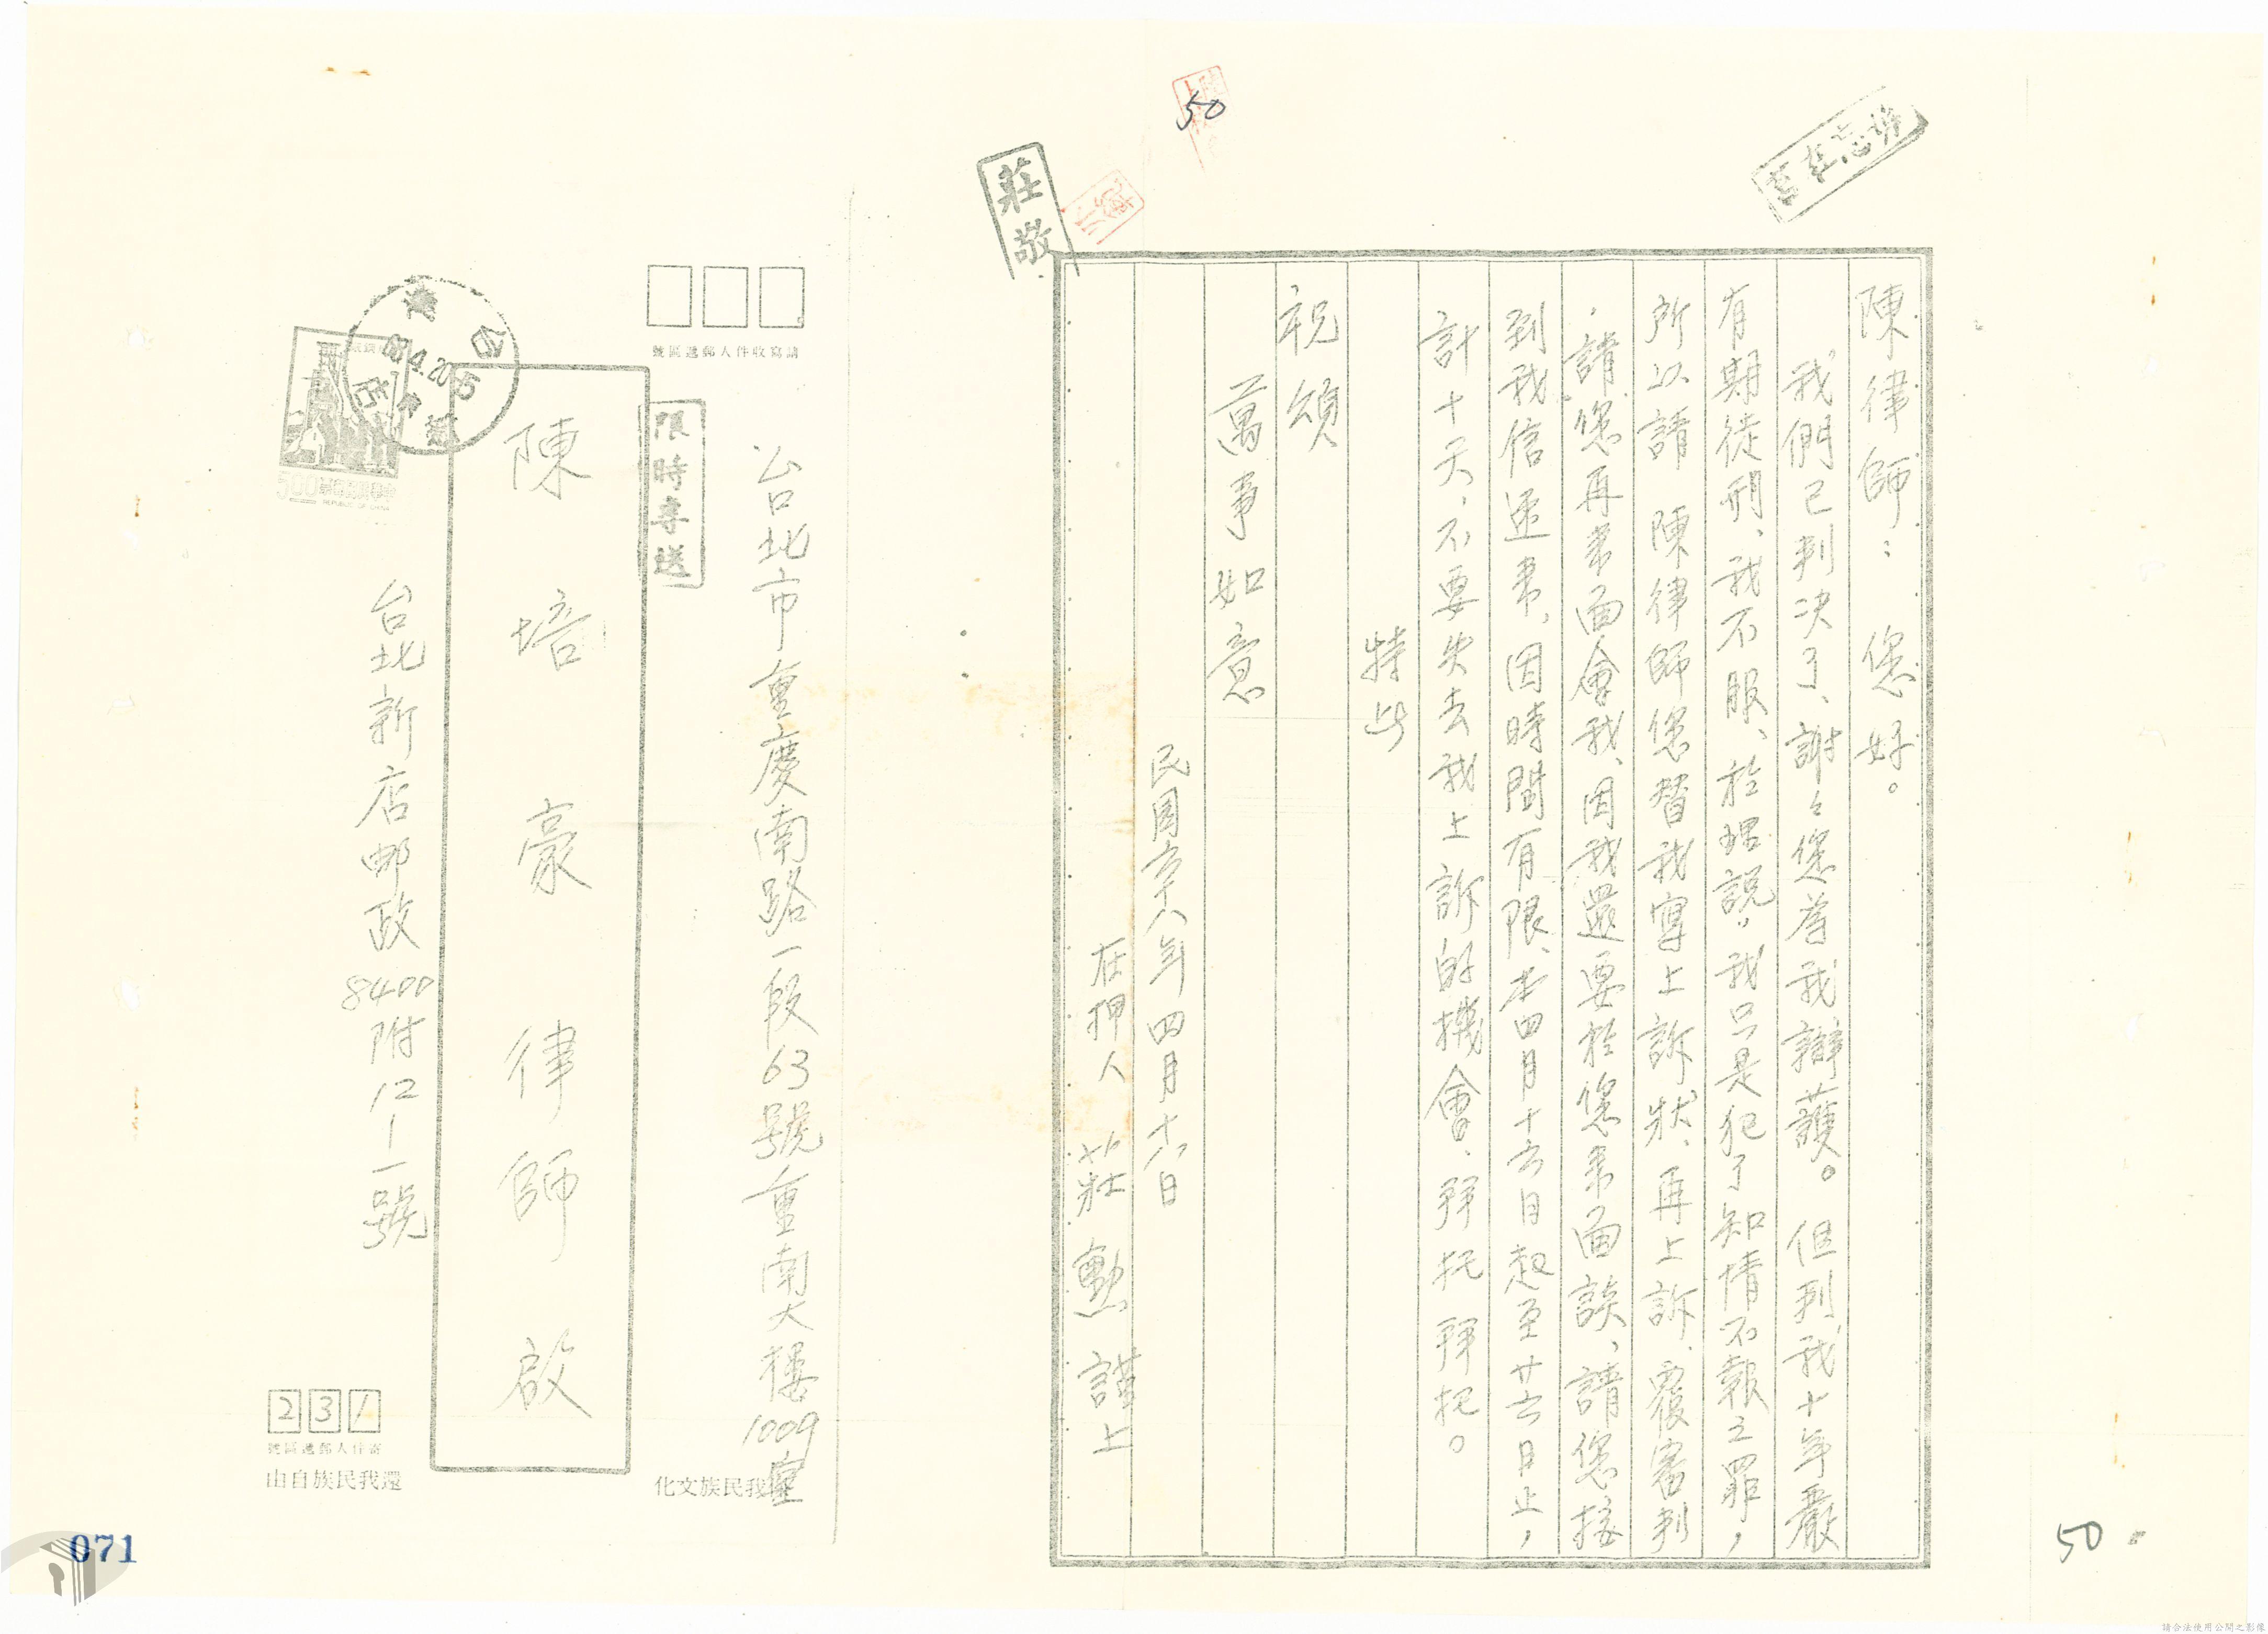 50
莊敬
毋忘在莒
陳律師：您好。
我們已判決了、謝々您為我辯護。但判我十年嚴
有期徒刑、我不服、於理說。我只是犯了知情不報之罪，
所以請 陳律師您替我寫上訴狀、再上訴、覆審判
，請您再來面會我、因我還要於您來面談、請您接
到我信速來、因時間有限、本四月十六日起至廿六日止，
計十天、不要失去我上訴的機會、拜托拜托。
特此
祝頌
萬事如意
民國六十八年四月十八日
在押人 莊勳 謹上
50
請寫收件人郵遞區號
台北市重慶南路一段63號重南大樓1009室
限時專送
陳培豪律師啟
台北新店郵政8400附12-1號
68.4.20.15
500
中華民國郵票
REPUBLIC OF CHINA
231
寄件人郵遞區號
還我民族自由
還我民族文化
071
請合法使用公開之影像